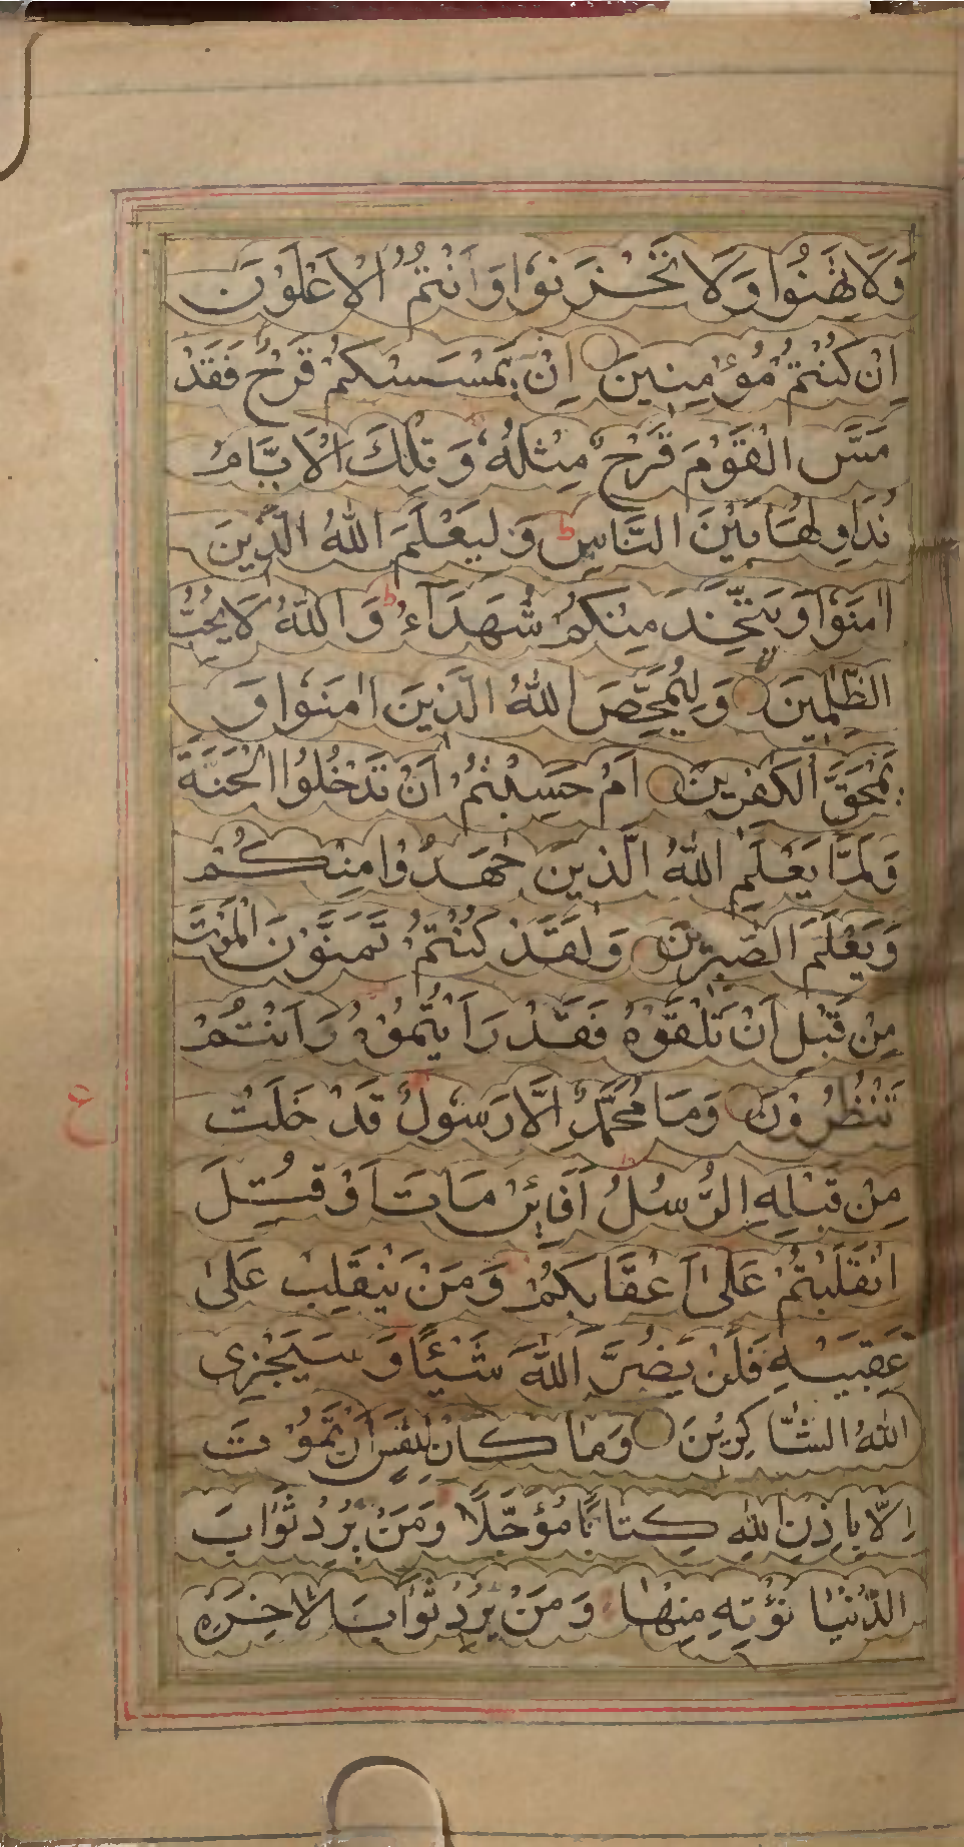 وَلَا تَهِنُوْا وَلَا تَحْزَنُوْا وَاَنْتُمُ الْاَعْلَوْنَ
اِنْ كُنْتُمْ مُؤْمِنِينَ اِنْ يَمْسَسْكُمْ قَرْحٌ فَقَدْ
مَسَّ الْقَوْمَ قَرْحٌ مِثْلُهُ وَتِلْكَ الْاَيَّامُ
نُدَاوِلُهَا بَيْنَ النَّاسِ ط وَلِيَعْلَمَ اللّٰهُ الَّذِينَ
اٰمَنُوْا وَيَتَّخِذَ مِنْكُمْ شُهَدَآءَ ط وَاللّٰهُ لَا يُحِبُّ
الظّٰلِمِينَ لا وَلِيُمَحِّصَ اللّٰهُ الَّذِينَ اٰمَنُوْا وَ
يَمْحَقَ الْكٰفِرِينَ اَمْ حَسِبْتُمْ اَنْ تَدْخُلُوا الْجَنَّةَ
وَلَمَّا يَعْلَمِ اللّٰهُ الَّذِينَ جٰهَدُوْا مِنْكُمْ
وَيَعْلَمَ الصّٰبِرِينَ وَلَقَدْ كُنْتُمْ تَمَنَّوْنَ الْمَوْتَ
مِنْ قَبْلِ اَنْ تَلْقَوْهُ فَقَدْ رَاَيْتُمُوْهُ وَاَنْتُمْ
تَنْظُرُوْنَ وَمَا مُحَمَّدٌ اِلَّا رَسُوْلٌ قَدْ خَلَتْ
ع
مِنْ قَبْلِهِ الرُّسُلُ ط اَفَائِنْ مَاتَ اَوْ قُتِلَ
انْقَلَبْتُمْ عَلٰى اَعْقَابِكُمْ وَمَنْ يَنْقَلِبْ عَلٰى
عَقِبَيْهِ فَلَنْ يَضُرَّ اللّٰهَ شَيْئًا وَسَيَجْزِى
اللّٰهُ الشّٰكِرِيْنَ وَمَا كَانَ لِنَفْسٍ اَنْ تَمُوْتَ
اِلَّا بِاِذْنِ اللّٰهِ كِتَابًا مُؤَجَّلًا وَمَنْ يُرِدْ ثَوَابَ
الدُّنْيَا نُؤْتِهِ مِنْهَا وَمَنْ يُرِدْ ثَوَابَ الْاٰخِرَةِ